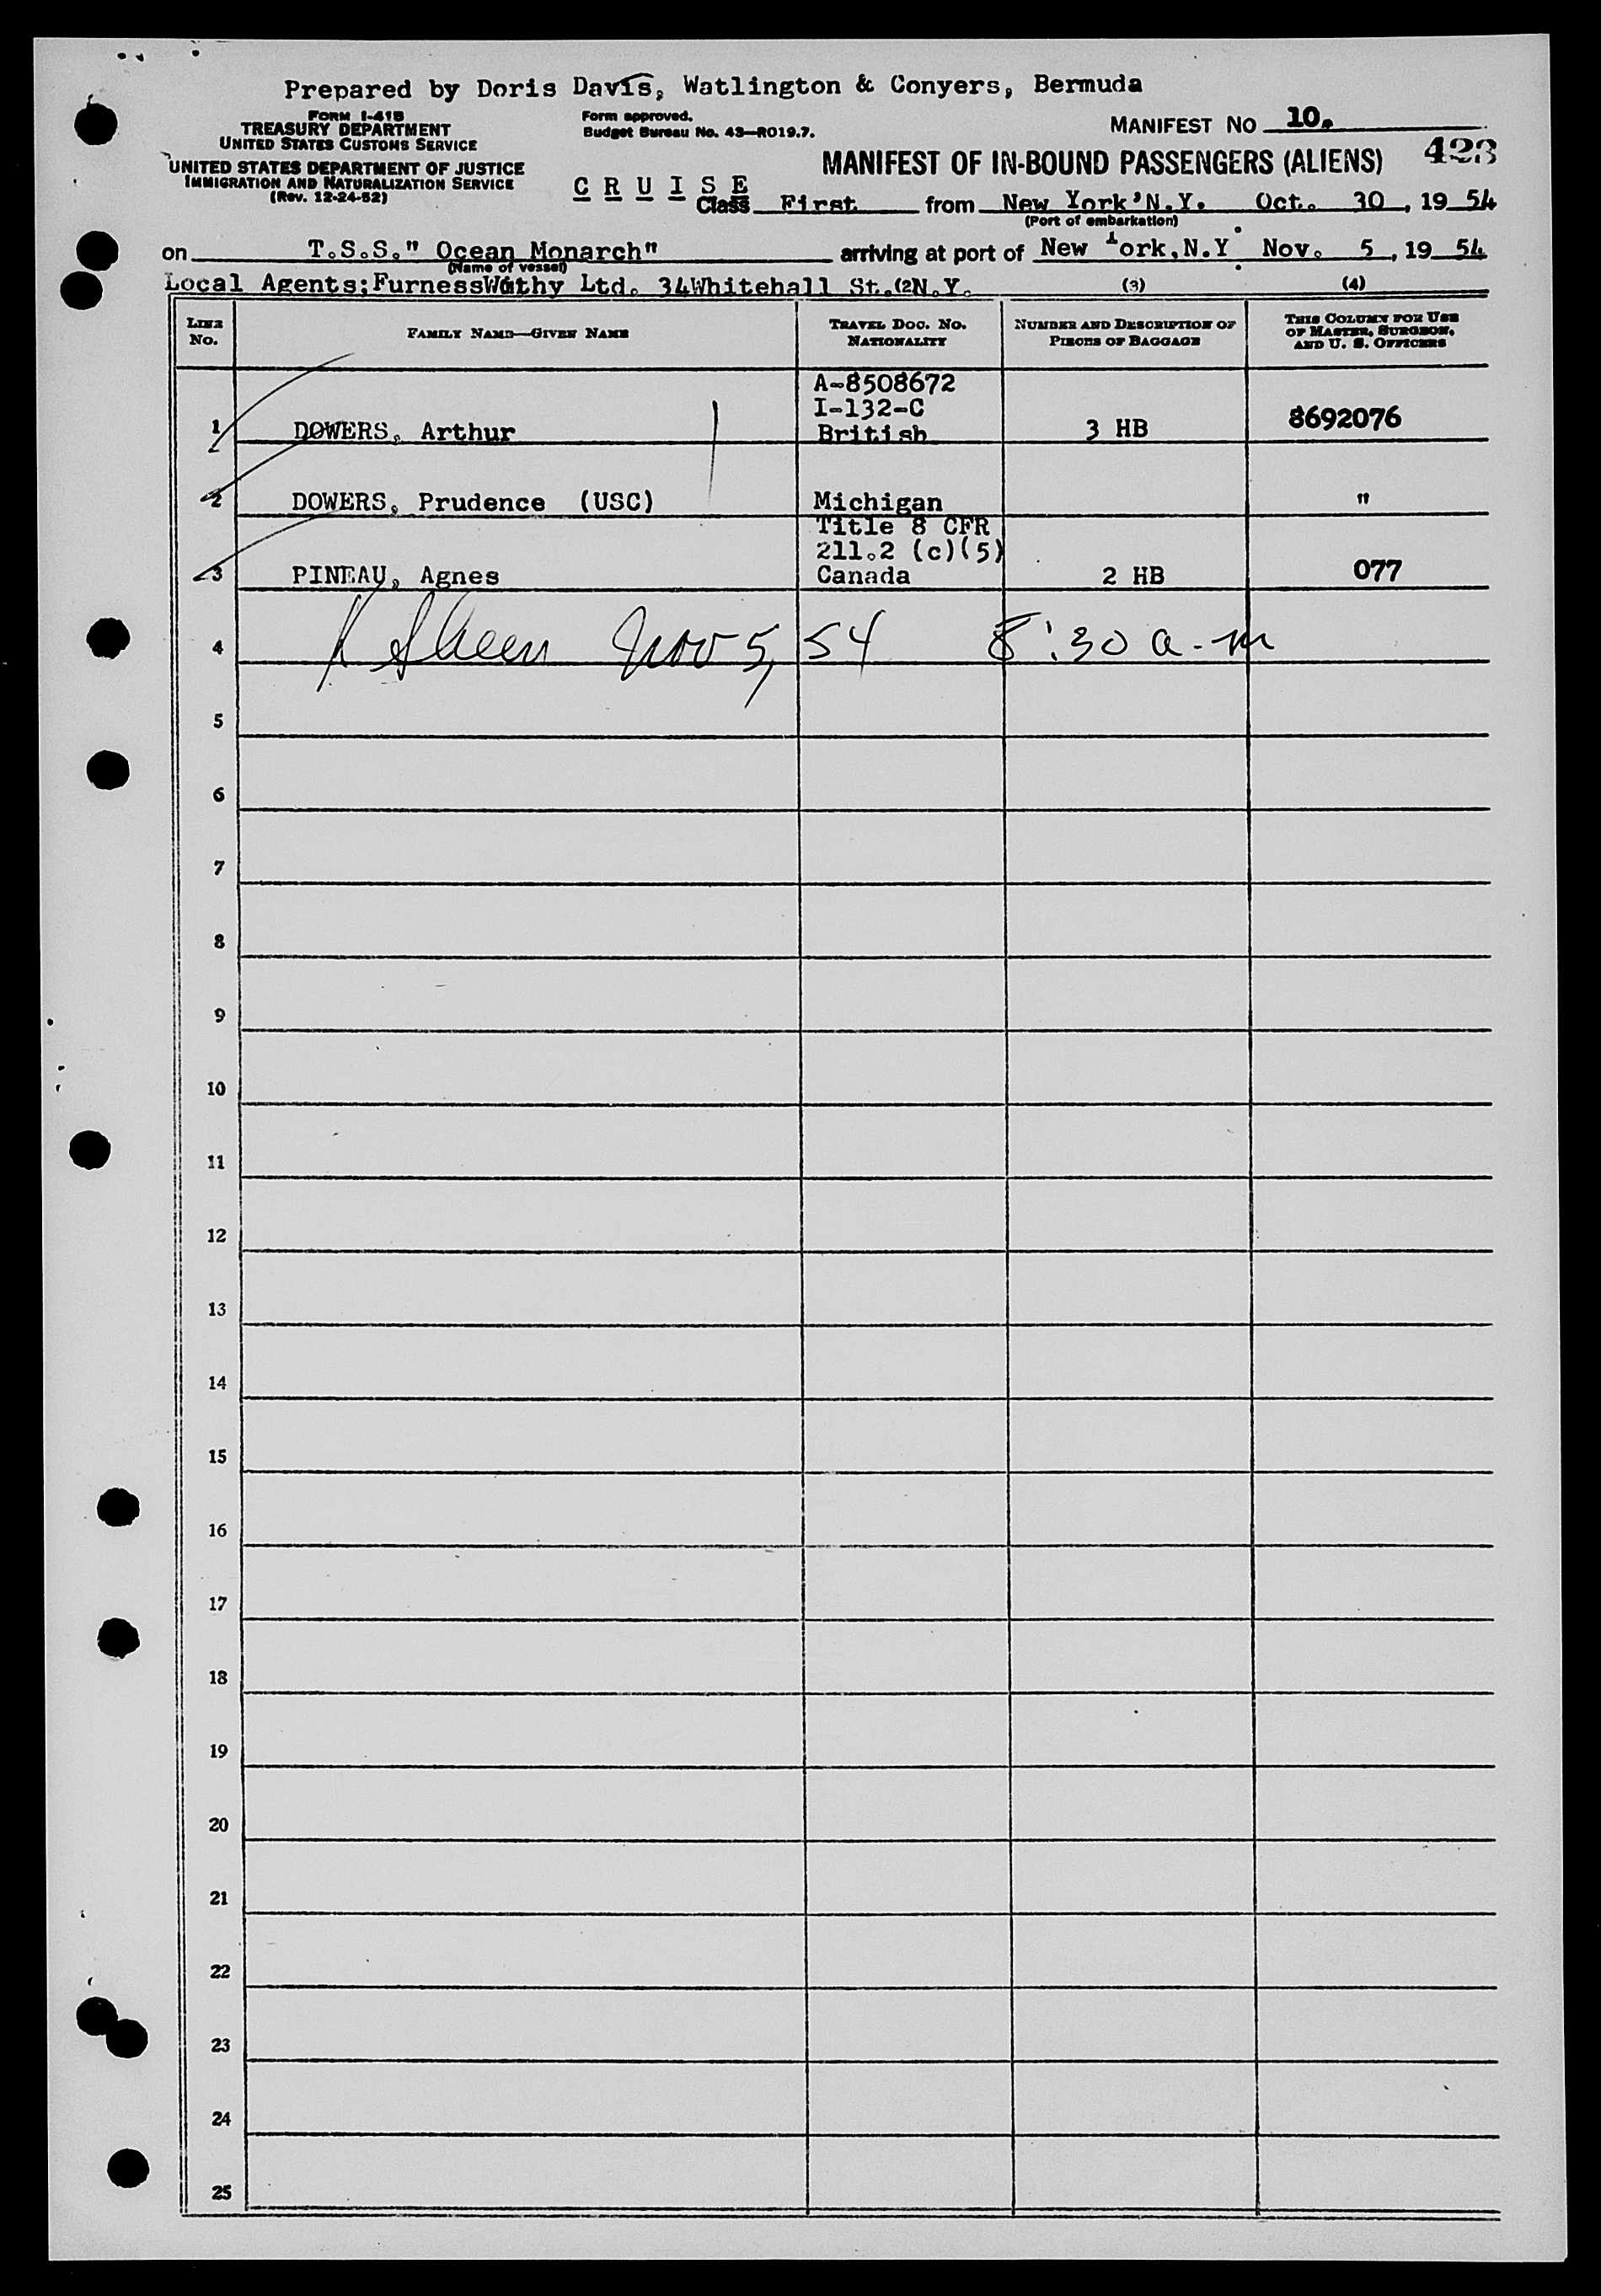 Prepared by Doris Davis, Watlington & Conyers, Bermuda
FORM I-418
TREASURY DEPARTMENT
UNITED STATES CUSTOMS SERVICE
UNITED STATES DEPARTMENT OF JUSTICE
IMMIGRATION AND NATURALIZATION SERVICE
(Rev. 12-24-52)
Form approved.
Budget Bureau No. 43—R019.7.
MANIFEST NO 10.
423
MANIFEST OF IN-BOUND PASSENGERS (ALIENS)
C R U I S E
Class First from New York'N.Y. Oct. 30, 19 54
(Port of embarkation)
on T.S.S." Ocean Monarch" arriving at port of New York,N.Y Nov. 5, 19 54
(Name of vessel)
Local Agents;Furness Ltd. 34Whitehall St.(2N.Y. (3) (4)
LINE No. FAMILY NAME—GIVEN NAME TRAVEL DOC. NO. NATIONALITY NUMBER AND DESCRIPTION OF PIECES OF BAGGAGE THIS COLUMN FOR USE OF MASTER, SURGEON, AND U. S. OFFICERS
A-8508672
I-132-C
1 DOWERS, Arthur British 3 HB 8692076
2 DOWERS, Prudence (USC) Michigan "
Title 8 CFR
211.2 (c)(5)
3 PINEAU, Agnes Canada 2 HB 077
4 Nov 5, 54 8:30 a.m
5
6
7
8
9
10
11
12
13
14
15
16
17
18
19
20
21
22
23
24
25